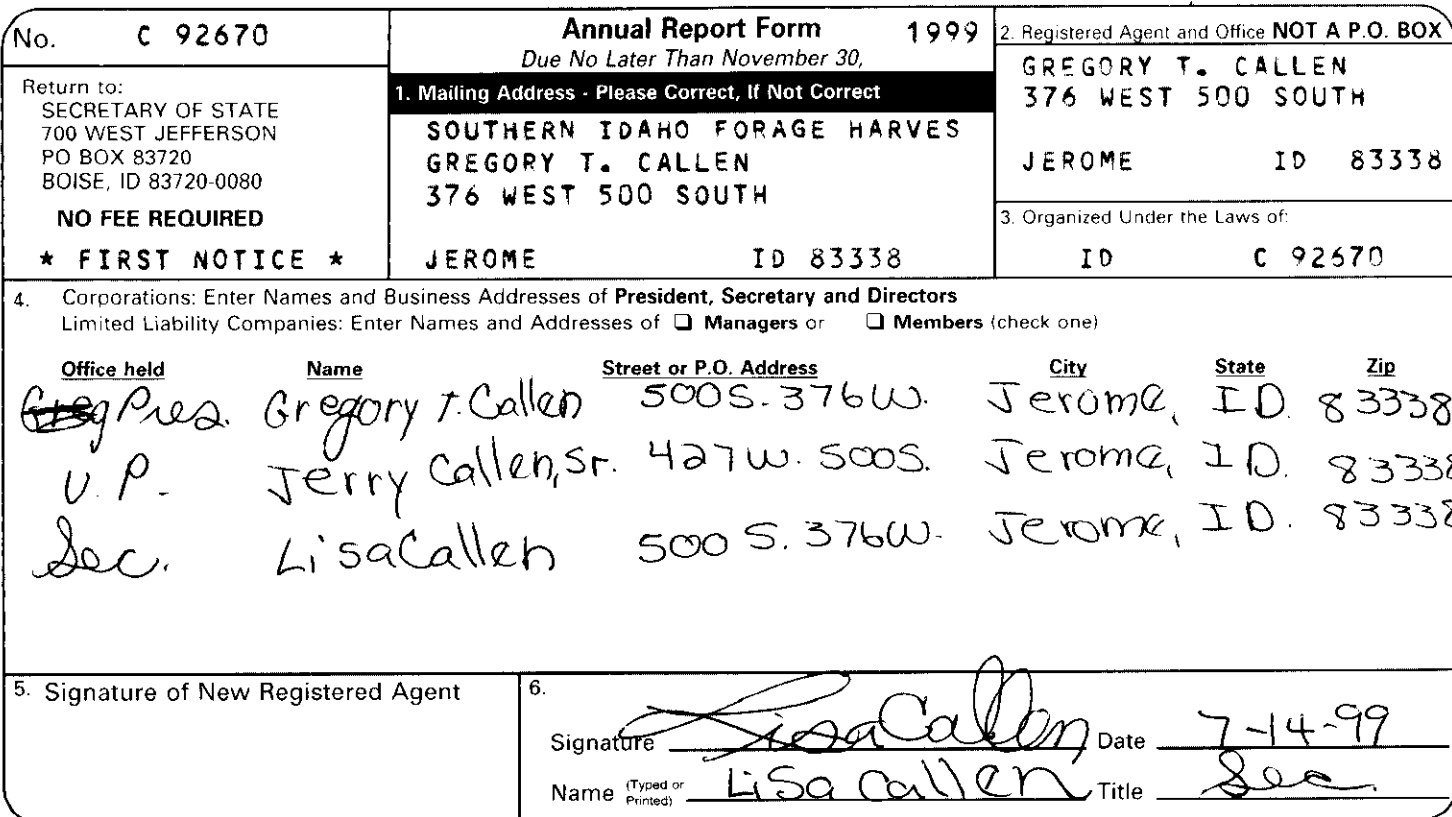 No. C 92670
Return to:
SECRETARY OF STATE
700 WEST JEFFERSON
PO BOX 83720
BOISE, ID 83720-0080
NO FEE REQUIRED
* FIRST NOTICE *
Annual Report Form 1999
Due No Later Than November 30,
1. Mailing Address - Please Correct, If Not Correct
SOUTHERN IDAHO FORAGE HARVES
GREGORY T. CALLEN
376 WEST 500 SOUTH
JEROME ID 83338
2. Registered Agent and Office NOT A P.O. BOX
GREGORY T. CALLEN
376 WEST 500 SOUTH
JEROME ID 83338
3. Organized Under the Laws of:
ID C 92670
4. Corporations: Enter Names and Business Addresses of President, Secretary and Directors
Limited Liability Companies: Enter Names and Addresses of ❑ Managers or ❑ Members (check one)
Office held Name Street or P.O. Address City State Zip
Pres. Gregory T. Callen 500 S. 376 W. Jerome, ID. 83338
V.P. Jerry Callen, Sr. 427 W. 500 S. Jerome, ID. 83338
Sec. Lisa Callen 500 S. 376 W. Jerome, ID. 83338
5. Signature of New Registered Agent
6.
Signature Lisa Callen Date 7-14-99
Name (Typed or Printed) Lisa Callen Title Sec.